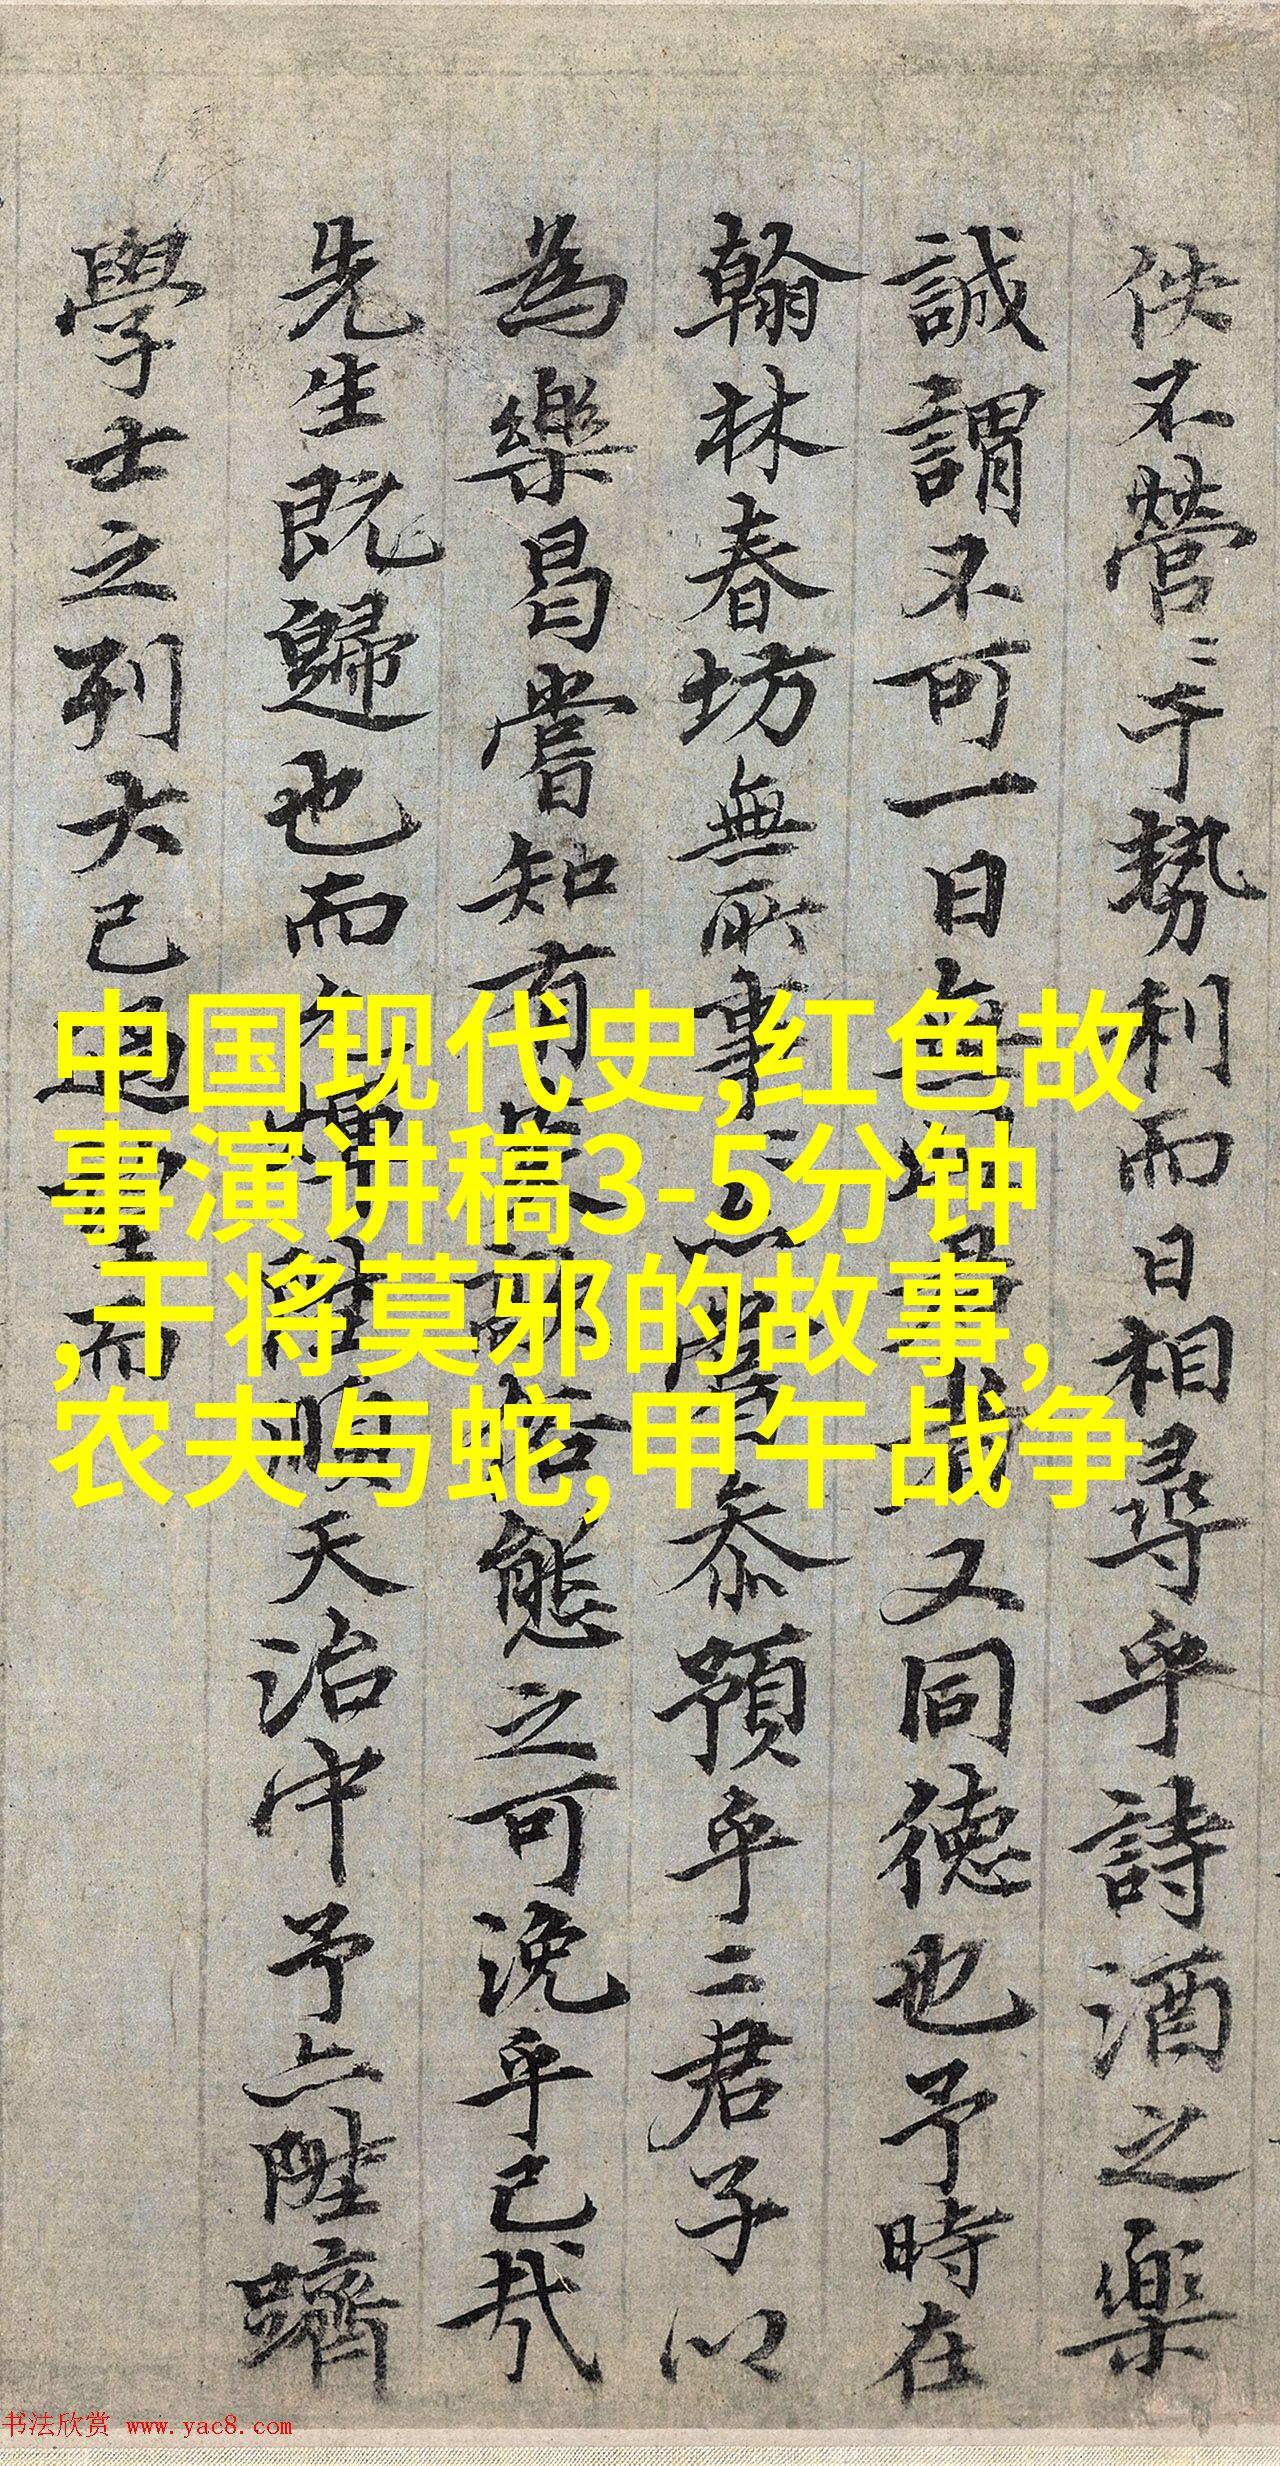 佚不營〻于勢利而日相尋乎詩酒之樂
誠謂不可一日無君又同德也予時在
翰林春坊無所事忝預乎二君子以
為樂曷嘗知有態之可浼乎己哉
先生既歸也而順天治中予亦陞躋
學士之列大已過而
中国现代史,红色故
事演讲稿3-5分钟
,干将莫邪的故事,
农夫与蛇,甲午战争
书法欣赏 www.yac8.com